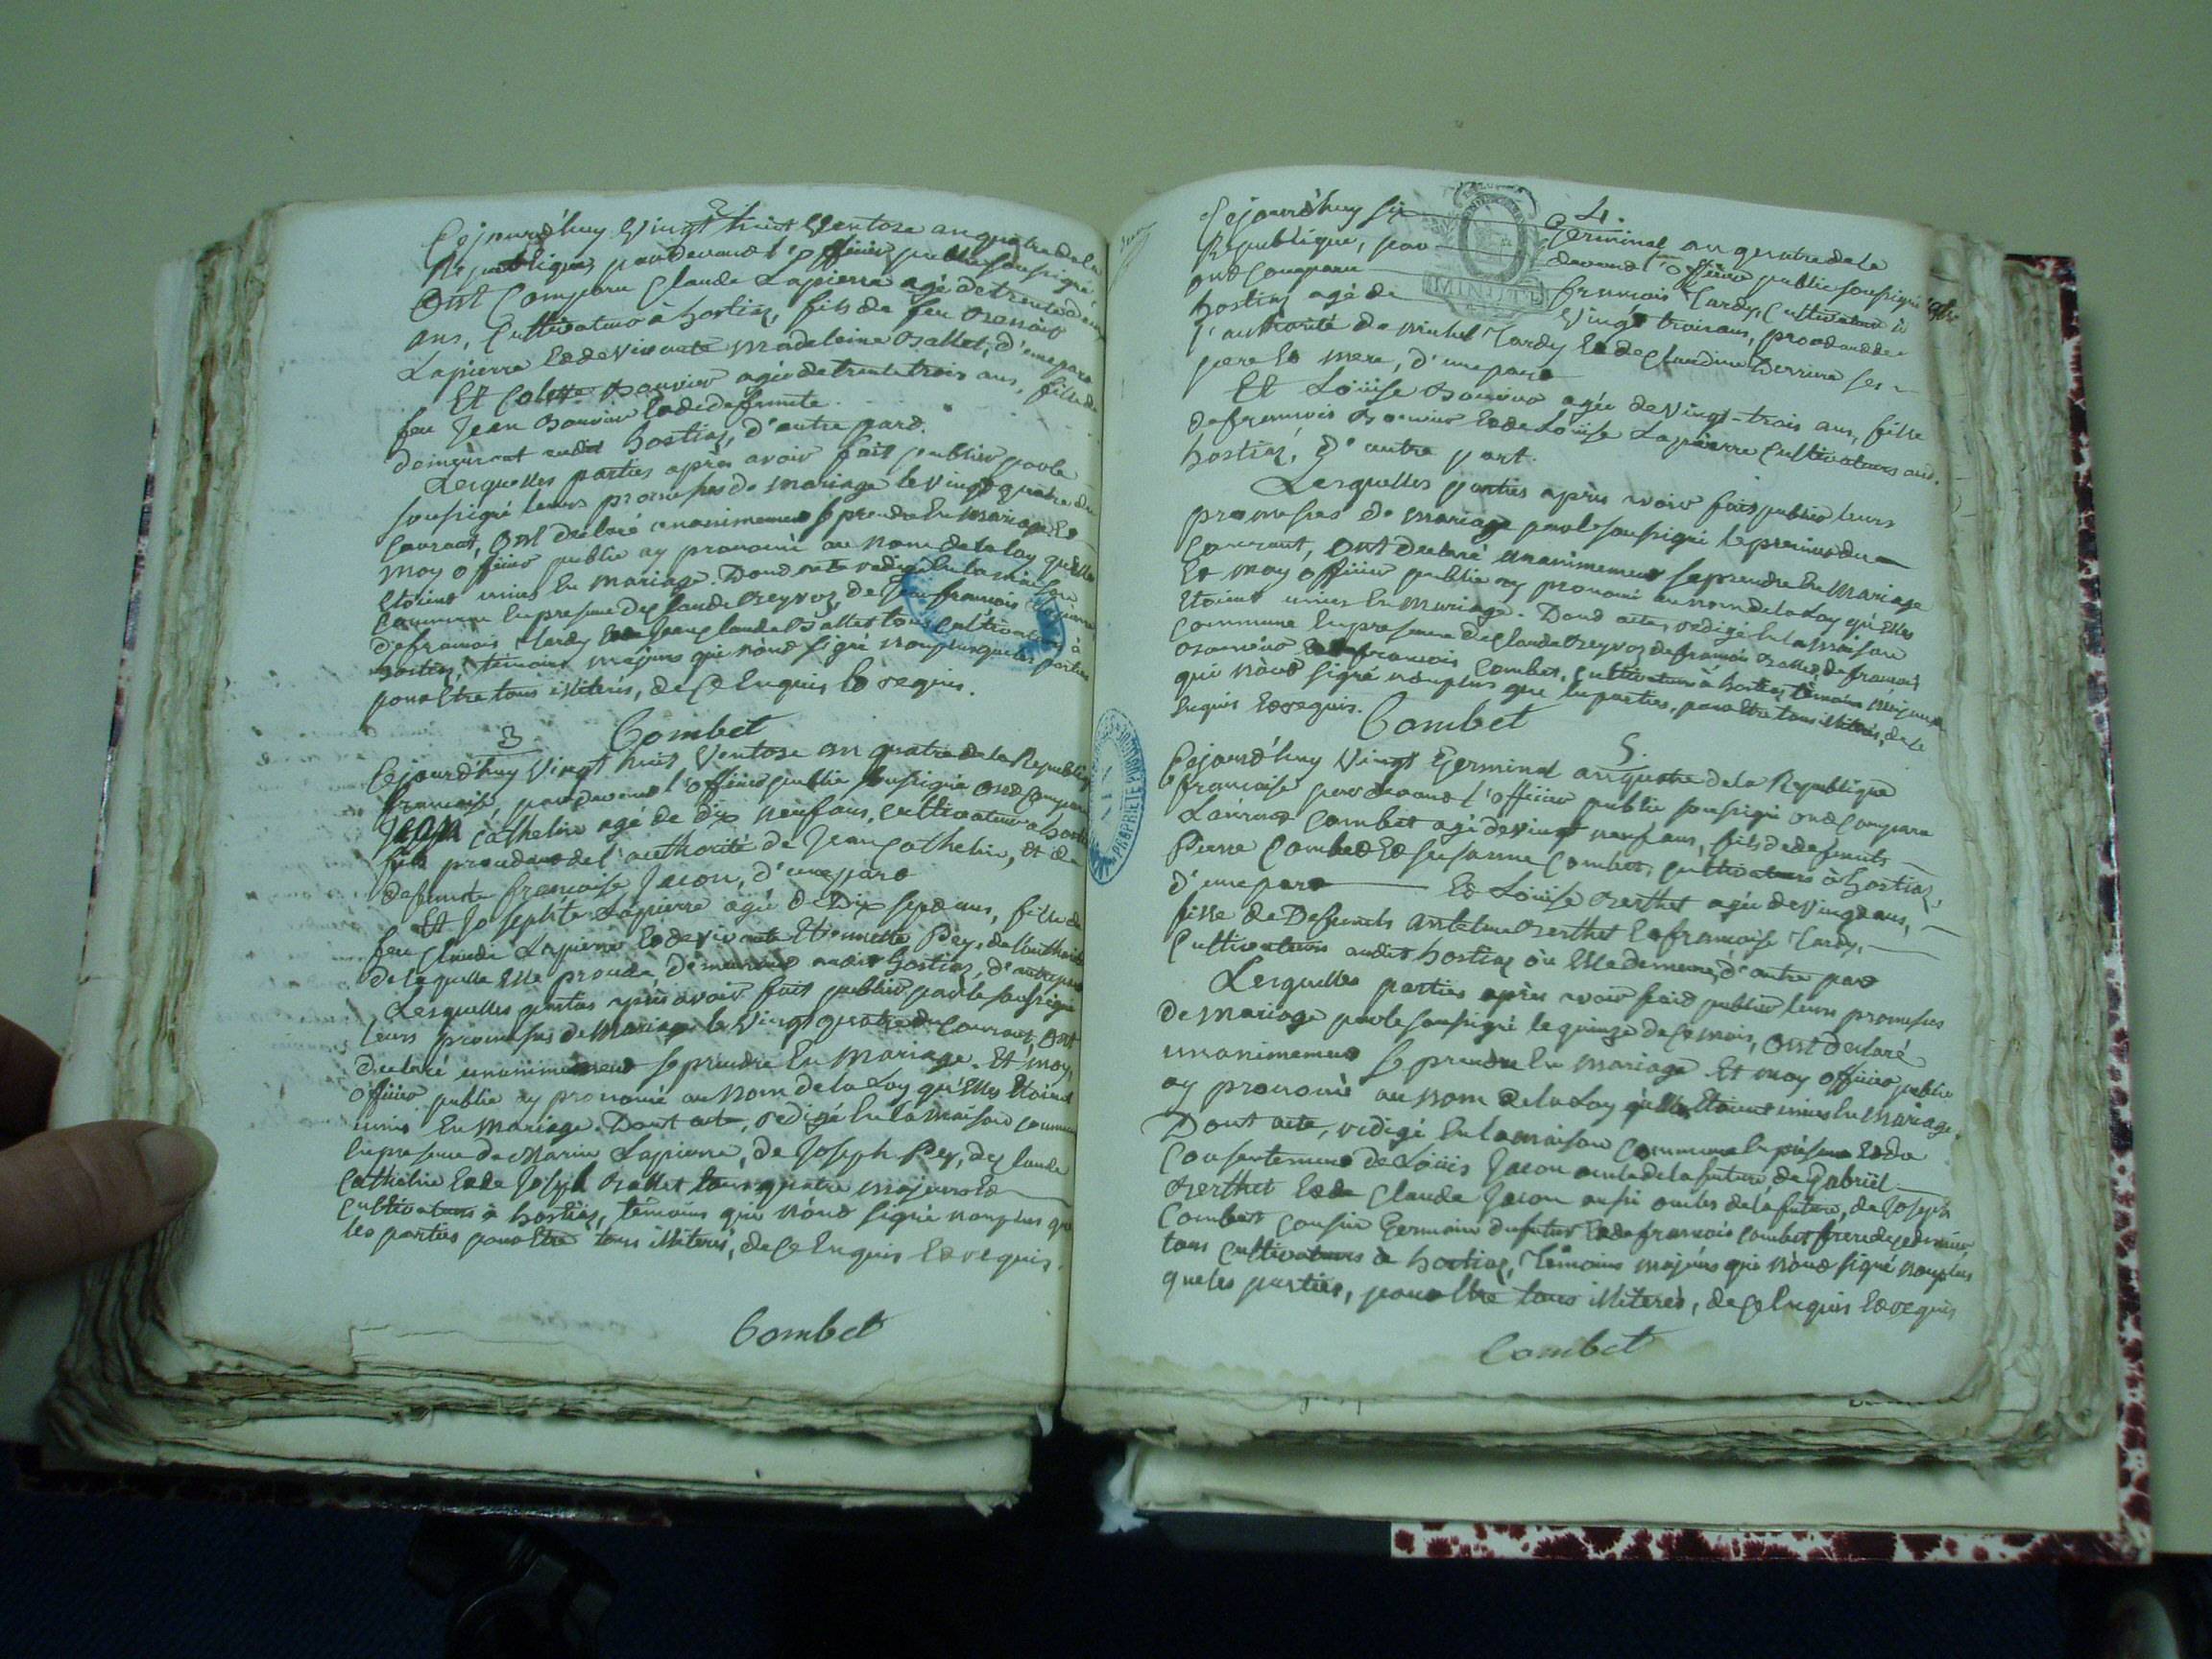 2
Cejourd'huy Vingt huit Ventose an quatre de la
Republique, pardevant l'officier public soussigné
Ont Comparu Claude Lapierre agé de trente deux
ans, Cultivateur à hostiaz, fils de feu
Lapierre et de vivante Madeleine Ballet, d'une part
Et Colette Bouvier agée de trente trois ans, fille de
feu Jean Bouvier et de defunte
demeurant audit hostiaz, d'autre part.
Lesquelles parties après avoir fait publier par le
soussigné leurs promesses de mariage le vingt quatre du
Courant, Ont declaré unanimement se prendre En mariage. Et
moy officier public ay prononcé au nom de la loy qu'Elles
Etoient unies En mariage. Dont acte redigé En la maison
Commune En presence de Claude Reyvoz, de Jean françois Lapierre
de françois Tardy et de Jean Claude Ballet tous Cultivateurs à
hostiaz, témoins majeurs qui n'ont signé non plus que les parties
pour Etre tous illiterés, de Ce Enquis Et requis.
Combet
3
Cejourd'huy Vingt huit Ventose an quatre de la Republique
française, pardevant l'officier public soussigné ont Comparu
Jean Cathelin agé de dix neuf ans, Cultivateur à hostiaz
fils procedant de l'authorité de Jean Cathelin, et de
defunte françoise Jacon, d'une part
Et Josephte Lapierre agée de Dix sept ans, fille de
feu Claude Lapierre Et de vivante Etiennette Pey, de l'authorité
de laquelle Elle procede, demeurant audit hostiaz, d'autre part
Lesquelles parties après avoir fait publier par le soussigné
leurs promesses de Mariage le Vingt quatre du Courant, Ont
declaré unanimement se prendre En Mariage. Et moy,
officier public ay prononcé au nom de la Loy qu'Elles Etoient
unies En Mariage. Dont acte, redigé En la maison Commune
En presence de Marin Lapierre, de Joseph Pey, de Claude
Cathelin Et de Joseph Ballet tous quatre majeurs Et
Cultivateurs à hostiaz, témoins qui n'ont signé non plus que
les parties pour Etre tous illiterés, de Ce Enquis Et requis.
Combet
4.
Cejourd'huy six Germinal an quatre de la
Republique, par devant l'officier public soussigné
ont Comparu françois Tardy, Cultivateur à
hostiaz agé de Vingt trois ans, procedant de
l'authorité de Michel Tardy Et de Claudine Perrier ses
pere Et mere, d'une part
MINUTE
Et Loüise Bouvier agée de Vingt-trois ans, fille
de françois Bouvier Et de Loüise Lapierre Cultivateurs aud.
hostiaz, d'autre part.
Lesquelles parties après avoir fait publier leurs
promesses de mariage par le soussigné le premier du
Courant, Ont declaré unanimement se prendre En Mariage
Et moy officier public ay prononcé au nom de la Loy qu'Elles
Etoient unies En Mariage. Dont acte, redigé En la maison
Commune En presence de Claude Reyvoz de françois Ballet, de françois
Bouvier Et de françois Combet, Cultivateurs à hostiaz témoins majeurs
qui n'ont signé non plus que les parties, pour Etre tous illiterés, de Ce
Enquis Et requis.
Combet
5.
Cejourd'huy Vingt Germinal an quatre de la Republique
française par devant l'officier public soussigné ont Comparu
Laurent Combet agé de vingt neuf ans, fils de defunts
Pierre Combet Et Susanne Combet, Cultivateurs à hostiaz,
d'une part Et Loüise Berthet agée de vingt ans,
fille de Defunts Antelme Berthet Et françoise Tardy,
Cultivateurs audit hostiaz où Elle demeure, d'autre part
Lesquelles parties après avoir fait publier leurs promesses
de mariage par le soussigné le quinze de Ce mois, Ont declaré
unanimement se prendre En mariage. Et moy officier public
ay prononcé au nom de la Loy qu'Elles Etoient unies En Mariage.
Dont acte, redigé En la maison Commune En présence Et du
Consentement de Loüis Jacon oncle de la future, de Gabriël
Berthet Et de Claude Jacon aussi oncles de la future, de Joseph
Combet Cousin Germain du futur Et de françois Combet frere de Ce dernier,
tous Cultivateurs à hostiaz, témoins majeurs qui n'ont signé non plus
que les parties, pour Etre tous illiterés, de Ce Enquis Et requis
Combet